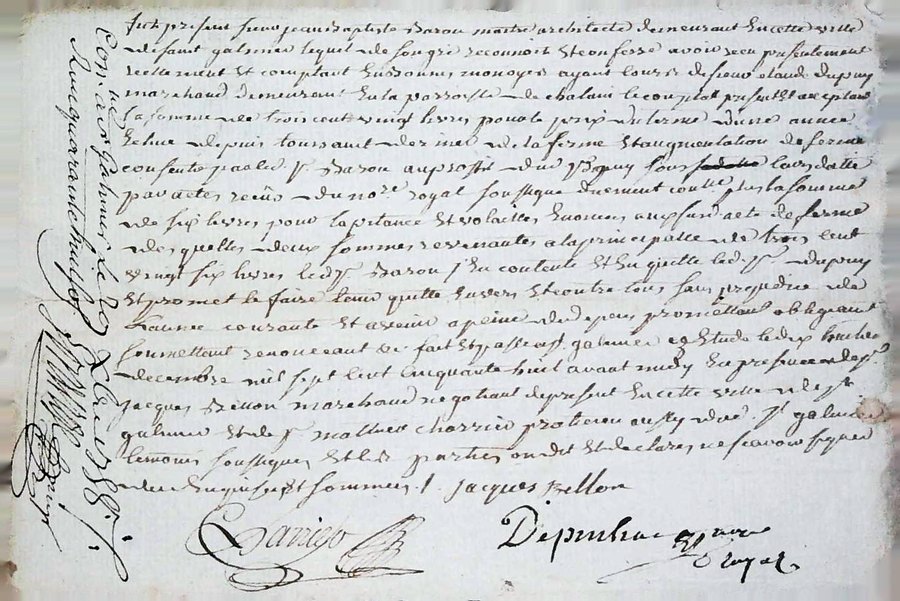 fut present sieur jean Baptiste Baron maitre architecte demeurant en cette ville
de saint galmier lequel de son gré reconnoit et confesse avoir reçu presentement
reellement et comptant en especes monoyes ayant cours de sieur claude dupuy
marchand demeurant en la parroisse de chalain le comptal present et acceptant
la somme de trois cent vingt livres pour le prix du terme d'une année
echue depuis toussaint dernier de la ferme et augmentation de ferme
consentie par led sr Baron au proffit dud Dupuy sous leurs datte
par actes reçus du nore royal soussigné duement contllé plus la somme
de six livres pour la pitance et volailles enoncés auxsusd acte de ferme
desquelles deux sommes revenantes a la principalle de trois cent
vingt six livres led sr Baron s'en contente et en quitte led sr dupuy
et promet le faire tenir quitte envers et contre tous sans prejudice de
l'année courante et avenir a peine de depens promettant obligeant
soumettant renonceant &c fait et passé a st galmier en etude le dix huitieme
decembre mil sept cent cinquante huit avant midy en presence de sr
jacques Bellon marchand negotiant de present en cette ville de st
galmier et de sr mathieu charrier praticien aussy dud st galmier
temoins soussignés et les parties ont dit et declarés ne scavoir signer
de ce enquis et sommés /. jacques Bellon
Charrier
nore
royal
Con. lé à st Galmier le 20 Xbre 1758 /.
Reçu quarante huit sols